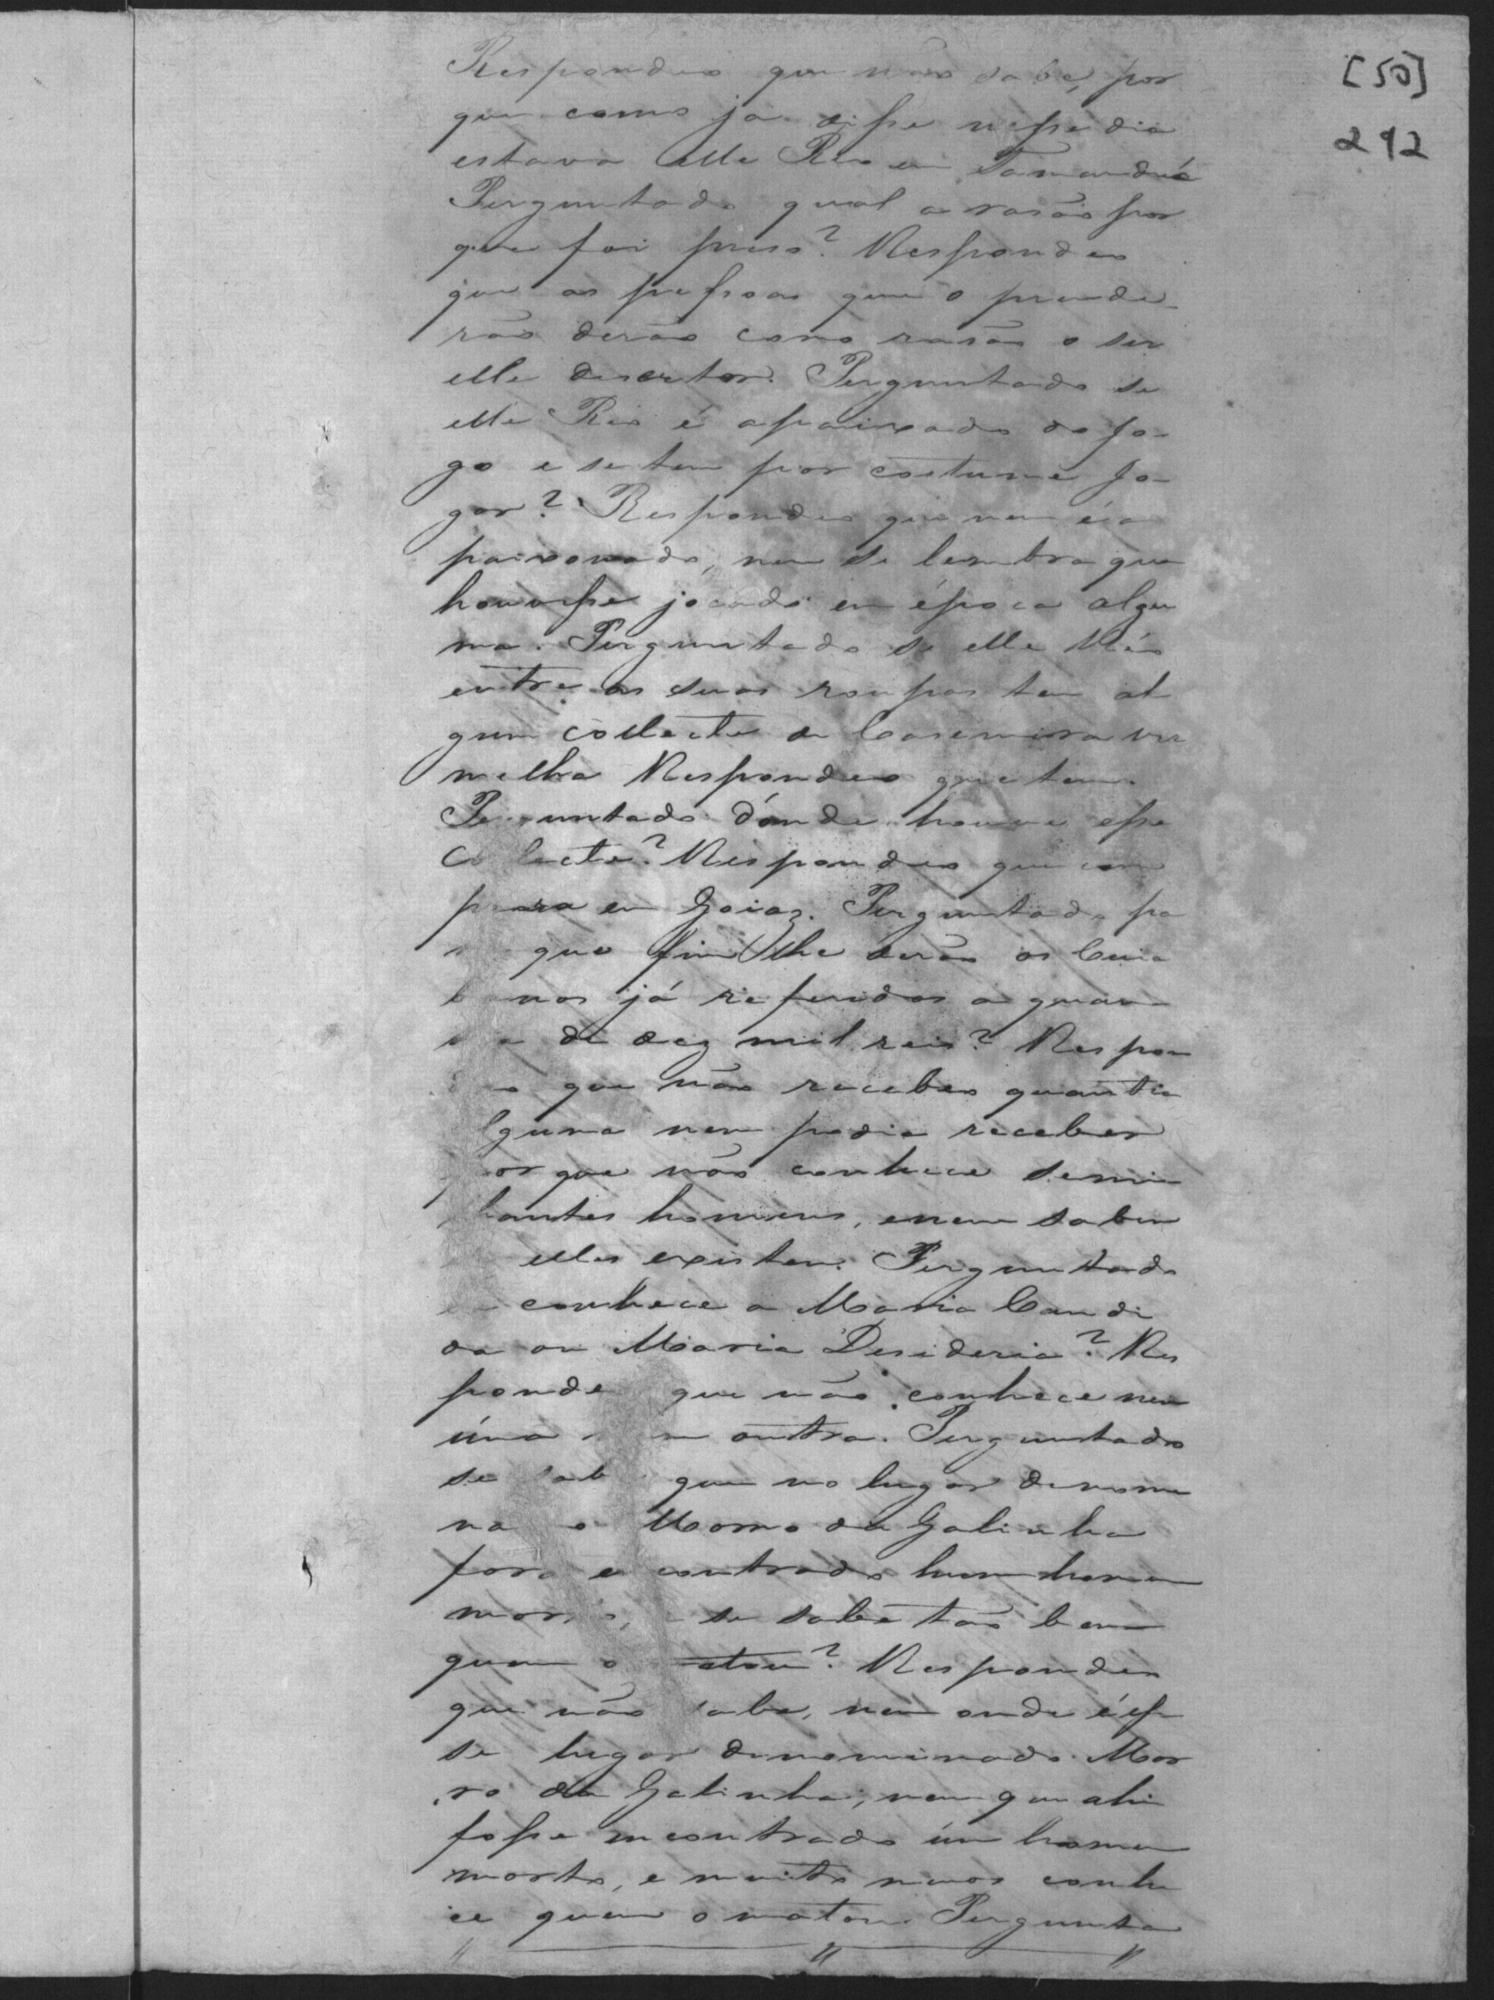 [50]
292
Respondeo que não sabe, por
que como já disse nesse dia
estava elle Reo em Tamanduá
Perguntado qual a rasão por
que foi preso? Respondeo
que as pessoas que o prende-
rão derão como rasão o ser
elle desertor. Perguntado se
elle Reo é apaixonado do jo-
go e se tem por costume jo-
gar? Respondeo que nem é a
paixonado, nem se lembra que
houvesse jogado em época algu
ma. Perguntado se elle Réo
entre as suas roupas tem al
gum collecte de Casemira ver
melha Respondeo que tem.
Pe untado donde houve esse
Co lecte? Respondeo que com
prara em Goiaz. Perguntado pa
que fim lhe derão os Cuia
b anos já referidos a quan-
a de dez mil reis? Respon
o que não recebeo quantia
lguma nem podia receber
orque não conhece seme
lhantes homens, e nem sabe se
elles existem. Perguntado
se conhece a Maria Candi
da ou Maria Desideria? Res
ponde que não conhece nem
úma n m outra. Perguntado
se sab que no lugar denomi
na o Morro da Galinha
fora e contrado hum homem
mor o, e se sabe tão bem
quem o matou? Respondeo
que não sabe, nem onde é es
se lugar denominado Mor
ro da Galinha, nem que ahi
fosse encontrado úm homem
morto, e muito menos conhe
ce quem o matou. Pergunta